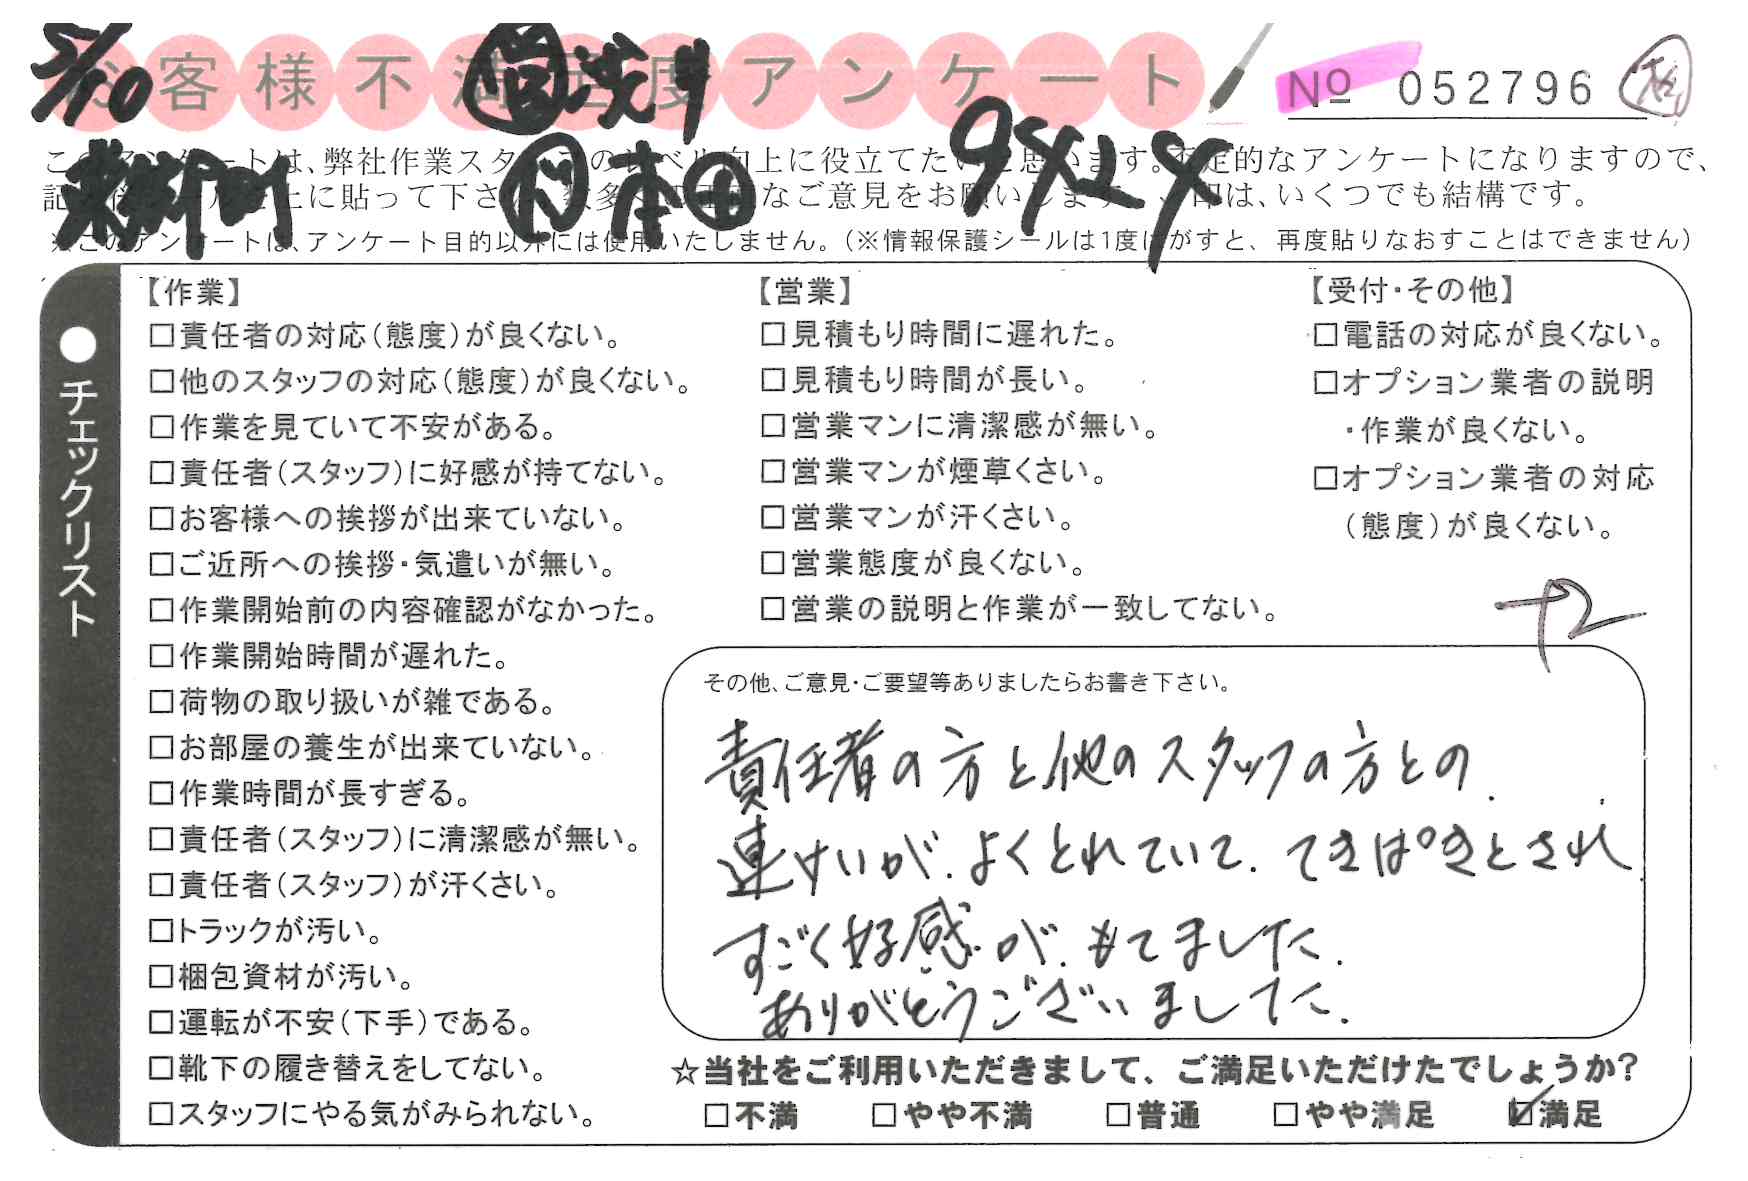 5/10
お客様不満足度アンケート
No 052796
このアンケートは、弊社作業スタッフのレベル向上に役立てたいと思います。否定的なアンケートになりますので、
記入後シールを上に貼って下さい。数多くの正直なご意見をお願いします。✓印は、いくつでも結構です。
※このアンケートは、アンケート目的以外には使用いたしません。(※情報保護シールは1度はがすと、再度貼りなおすことはできません)
●チェックリスト
【作業】
□責任者の対応(態度)が良くない。
□他のスタッフの対応(態度)が良くない。
□作業を見ていて不安がある。
□責任者(スタッフ)に好感が持てない。
□お客様への挨拶が出来ていない。
□ご近所への挨拶・気遣いが無い。
□作業開始前の内容確認がなかった。
□作業開始時間が遅れた。
□荷物の取り扱いが雑である。
□お部屋の養生が出来ていない。
□作業時間が長すぎる。
□責任者(スタッフ)に清潔感が無い。
□責任者(スタッフ)が汗くさい。
□トラックが汚い。
□梱包資材が汚い。
□運転が不安(下手)である。
□靴下の履き替えをしてない。
□スタッフにやる気がみられない。
【営業】
□見積もり時間に遅れた。
□見積もり時間が長い。
□営業マンに清潔感が無い。
□営業マンが煙草くさい。
□営業マンが汗くさい。
□営業態度が良くない。
□営業の説明と作業が一致してない。
【受付・その他】
□電話の対応が良くない。
□オプション業者の説明
・作業が良くない。
□オプション業者の対応
(態度)が良くない。
その他、ご意見・ご要望等ありましたらお書き下さい。
責任者の方と他のスタッフの方との
連けいが、よくとれていて、てきぱきとされ
すごく好感が、もてました。
ありがとうございました。
☆当社をご利用いただきまして、ご満足いただけたでしょうか?
□不満 □やや不満 □普通 □やや満足 ☑満足